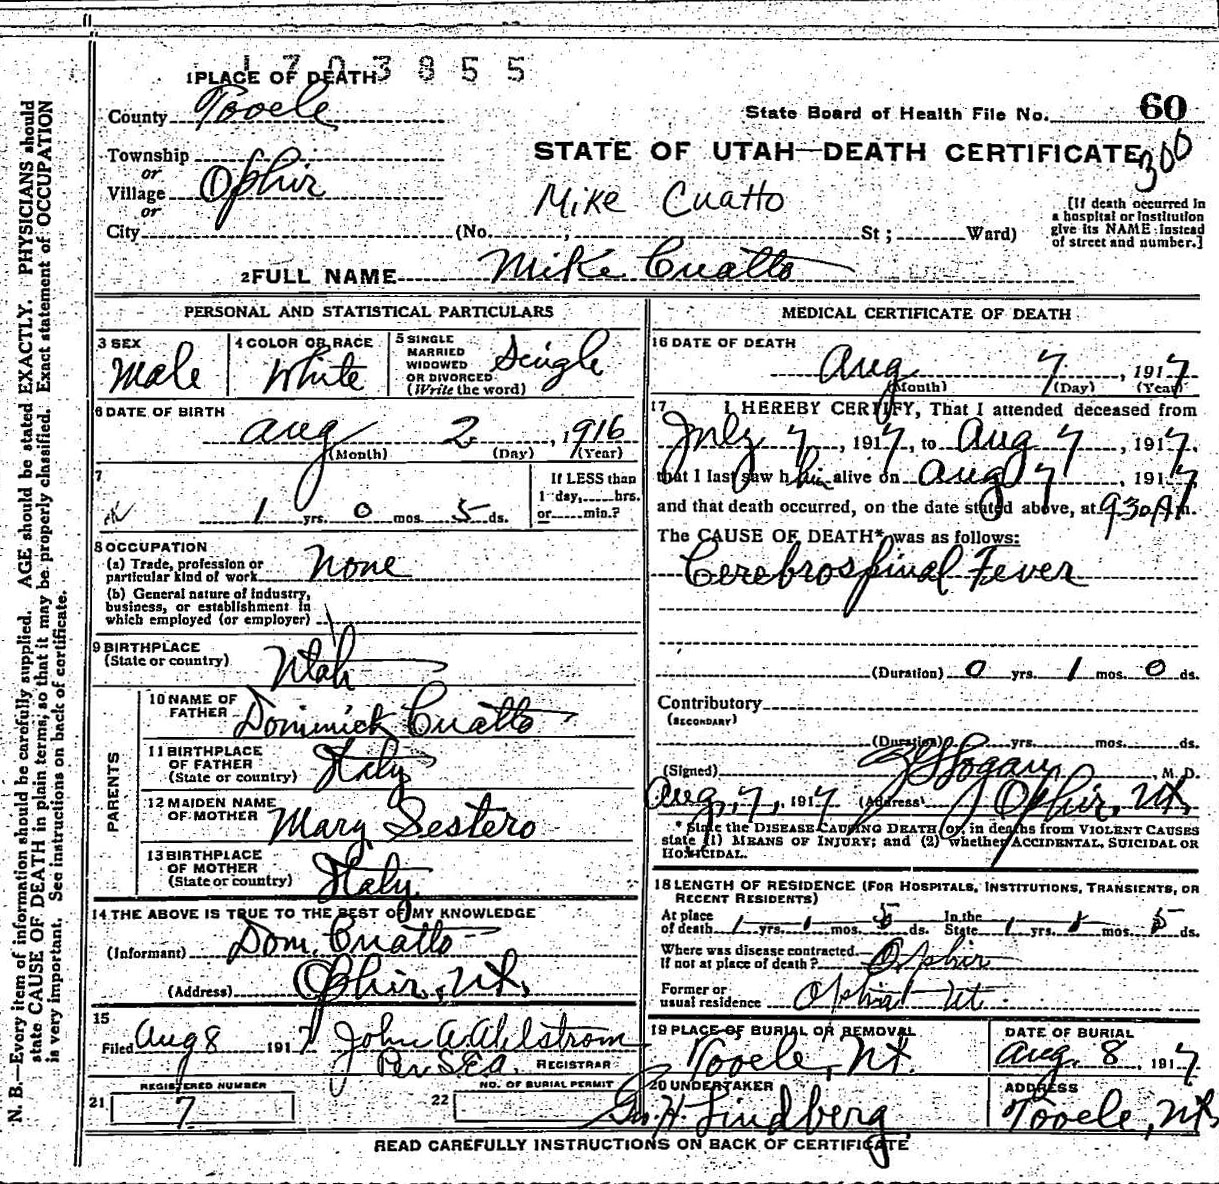 1 7 0 3 8 5 5
1 PLACE OF DEATH
County Tooele
State Board of Health File No. 60
300
Township
or
Village Ophir
or
City (No. , St ; Ward)
STATE OF UTAH—DEATH CERTIFICATE
Mike Cuatto
[If death occurred in
a hospital or institution
give its NAME instead
of street and number.]
2 FULL NAME Mike Cuatto
PERSONAL AND STATISTICAL PARTICULARS
3 SEX Male
4 COLOR OR RACE White
5 SINGLE
MARRIED
WIDOWED
OR DIVORCED
(Write the word) Single
6 DATE OF BIRTH
Aug 2 , 1916
(Month) (Day) (Year)
7
1 yrs. 0 mos. 5 ds.
If LESS than
1 day, hrs.
or min.?
8 OCCUPATION
(a) Trade, profession or
particular kind of work None
(b) General nature of industry,
business, or establishment in
which employed (or employer)
9 BIRTHPLACE
(State or country) Utah
PARENTS
10 NAME OF
FATHER Dominick Cuatto
11 BIRTHPLACE
OF FATHER
(State or country) Italy
12 MAIDEN NAME
OF MOTHER Mary Sestero
13 BIRTHPLACE
OF MOTHER
(State or country) Italy
14 THE ABOVE IS TRUE TO THE BEST OF MY KNOWLEDGE
(Informant) Dom. Cuatto
(Address) Ophir, Ut.
15
Filed Aug 8 1917 John A. Ahlstrom
Per S.E.A. REGISTRAR
REGISTERED NUMBER
21 7
NO. OF BURIAL PERMIT
22
MEDICAL CERTIFICATE OF DEATH
16 DATE OF DEATH
Aug 7 , 1917
(Month) (Day) (Year)
17 I HEREBY CERTIFY, That I attended deceased from
July 7 , 1917, to Aug 7 , 1917,
that I last saw him alive on Aug 7 , 1917
and that death occurred, on the date stated above, at 930 A m.
The CAUSE OF DEATH* was as follows:
Cerebrospinal Fever
(Duration) 0 yrs. 1 mos. 0 ds.
Contributory
(SECONDARY)
(Duration) yrs. mos. ds.
(Signed) Logan , M. D.
Aug, 7, 1917 (Address) Ophir, Ut,
* State the DISEASE CAUSING DEATH or, in deaths from VIOLENT CAUSES
state (1) MEANS OF INJURY; and (2) whether ACCIDENTAL, SUICIDAL OR
HOMICIDAL.
18 LENGTH OF RESIDENCE (FOR HOSPITALS, INSTITUTIONS, TRANSIENTS, OR
RECENT RESIDENTS)
At place
of death 1 yrs. 1 mos. 5 ds. In the
State 1 yrs. 1 mos. 5 ds.
Where was disease contracted
If not at place of death? Ophir
Former or
usual residence Ophir Ut.
19 PLACE OF BURIAL OR REMOVAL
Tooele, Ut.
DATE OF BURIAL
Aug. 8 1917
20 UNDERTAKER
Geo. H. Lindberg
ADDRESS
Tooele, Ut,
READ CAREFULLY INSTRUCTIONS ON BACK OF CERTIFICATE
N. B.—Every item of information should be carefully supplied. AGE should be stated EXACTLY. PHYSICIANS should
state CAUSE OF DEATH in plain terms, so that it may be properly classified. Exact statement of OCCUPATION
is very important. See instructions on back of certificate.